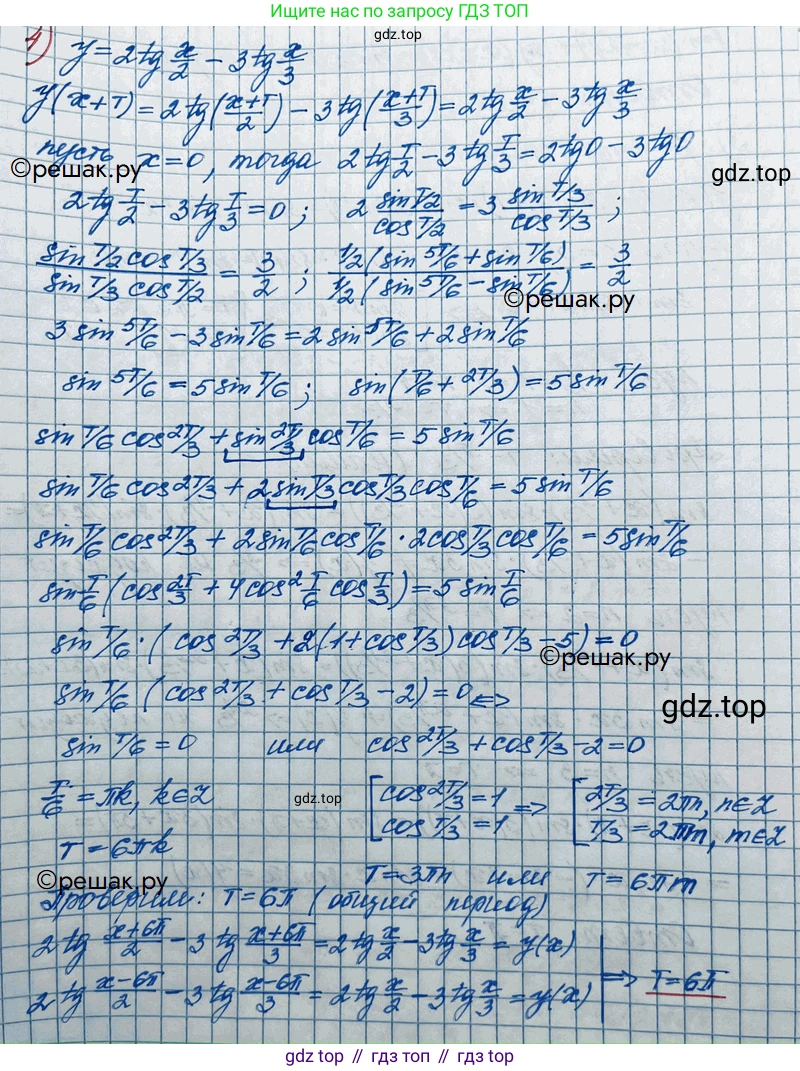 Ищите нас по запросу ГДЗ ТОП
gdz.top
4) y = 2tg x/2 − 3tg x/3
y(x+T) = 2tg((x+T)/2) − 3tg((x+T)/3) = 2tg x/2 − 3tg x/3
пусть x=0, тогда 2tg T/2 − 3tg T/3 = 2tg0 − 3tg0
©решак.ру
gdz.top
2tg T/2 − 3tg T/3 = 0; 2 (sin T/2)/(cos T/2) = 3 (sin T/3)/(cos T/3);
(sin T/2 cos T/3)/(sin T/3 cos T/2) = 3/2; (1/2(sin 5T/6 + sin T/6))/(1/2(sin 5T/6 − sin T/6)) = 3/2
©решак.ру
3 sin 5T/6 − 3 sin T/6 = 2 sin 5T/6 + 2 sin T/6
sin 5T/6 = 5 sin T/6; sin(T/6 + 2T/3) = 5 sin T/6
sin T/6 cos 2T/3 + sin 2T/3 cos T/6 = 5 sin T/6
sin T/6 cos 2T/3 + 2 sin T/3 cos T/3 cos T/6 = 5 sin T/6
sin T/6 cos 2T/3 + 2 sin T/6 cos T/6 · 2cos T/3 cos T/6 = 5 sin T/6
sin T/6 (cos 2T/3 + 4cos² T/6 cos T/3) = 5 sin T/6
sin T/6 · (cos 2T/3 + 2(1 + cos T/3) cos T/3 − 5) = 0
©решак.ру
sin T/6 (cos 2T/3 + cos T/3 − 2) = 0 <=>
gdz.top
sin T/6 = 0 или cos 2T/3 + cos T/3 − 2 = 0
T/6 = πk, k∈Z [cos 2T/3 = 1 => [2T/3 = 2πn, n∈Z
gdz.top
cos T/3 = 1 T/3 = 2πm, m∈Z
T = 6πk
T = 3πn или T = 6πm
©решак.ру
Проверим: T = 6π (общий период)
2tg (x+6π)/2 − 3tg (x+6π)/3 = 2tg x/2 − 3tg x/3 = y(x)
2tg (x−6π)/2 − 3tg (x−6π)/3 = 2tg x/2 − 3tg x/3 = y(x) | => T = 6π
gdz.top // гдз топ // gdz.top